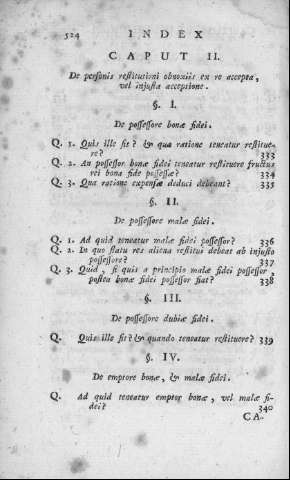 524 INDEX
CAPUT II.
De personis restitutioni obnoxiis ex re accepta,
vel injusta acceptione.
§. I.
De possessore bonæ fidei.
Q. 1. Quis ille sit? & qua ratione teneatur restitue-
re? 333
Q. 2. An possessor bonæ fidei teneatur restituere fructus
rei bona fide possessæ? 334
Q. 3. Qua ratione expensæ deduci debeant? 335
§. II.
De possessore malæ fidei.
Q. 1. Ad quid teneatur malæ fidei possessor? 336
Q. 2. In quo statu res aliena restitui debeat ab injusto
possessore? 337
Q. 3. Quid, si quis a principio malæ fidei possessor,
postea bonæ fidei possessor fiat? 338
§. III.
De possessore dubiæ fidei.
Q. Quis ille sit? & quando teneatur restituere? 339
§. IV.
De emptore bonæ, & malæ fidei.
Q. Ad quid teneatur emptor bonæ, vel malæ fi-
dei? 340
CA-